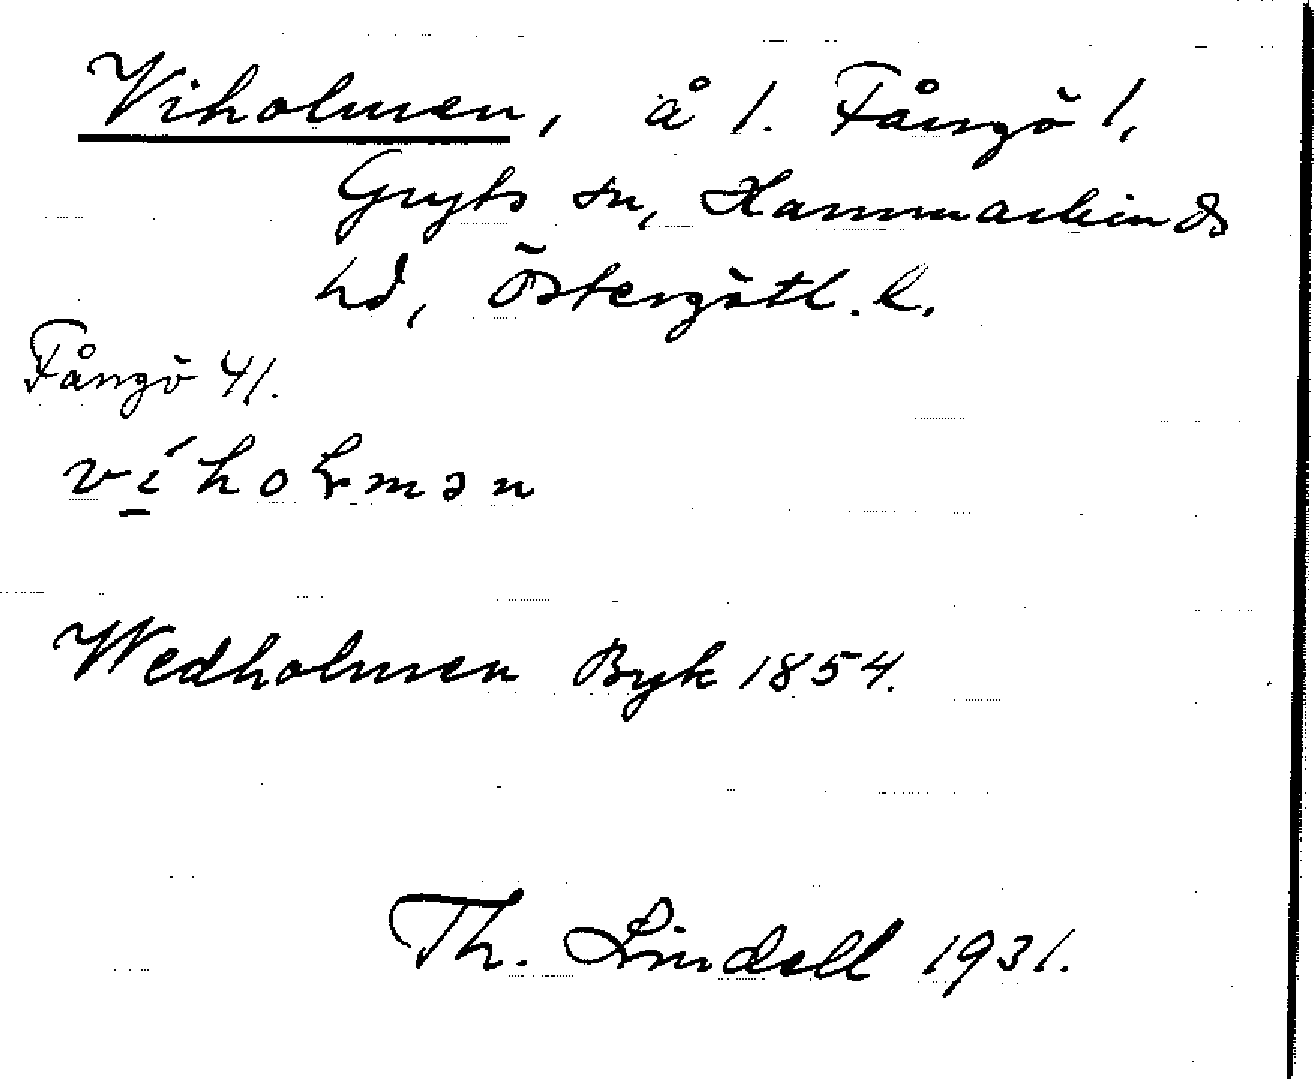 Viholmen, å l. Fångö l.
Gryts sn, Hammarkinds
hd, Östergötl. l.
Fångö 41.
víholmən
Wedholmen Byk 1854.
Th. Lindell 1931.